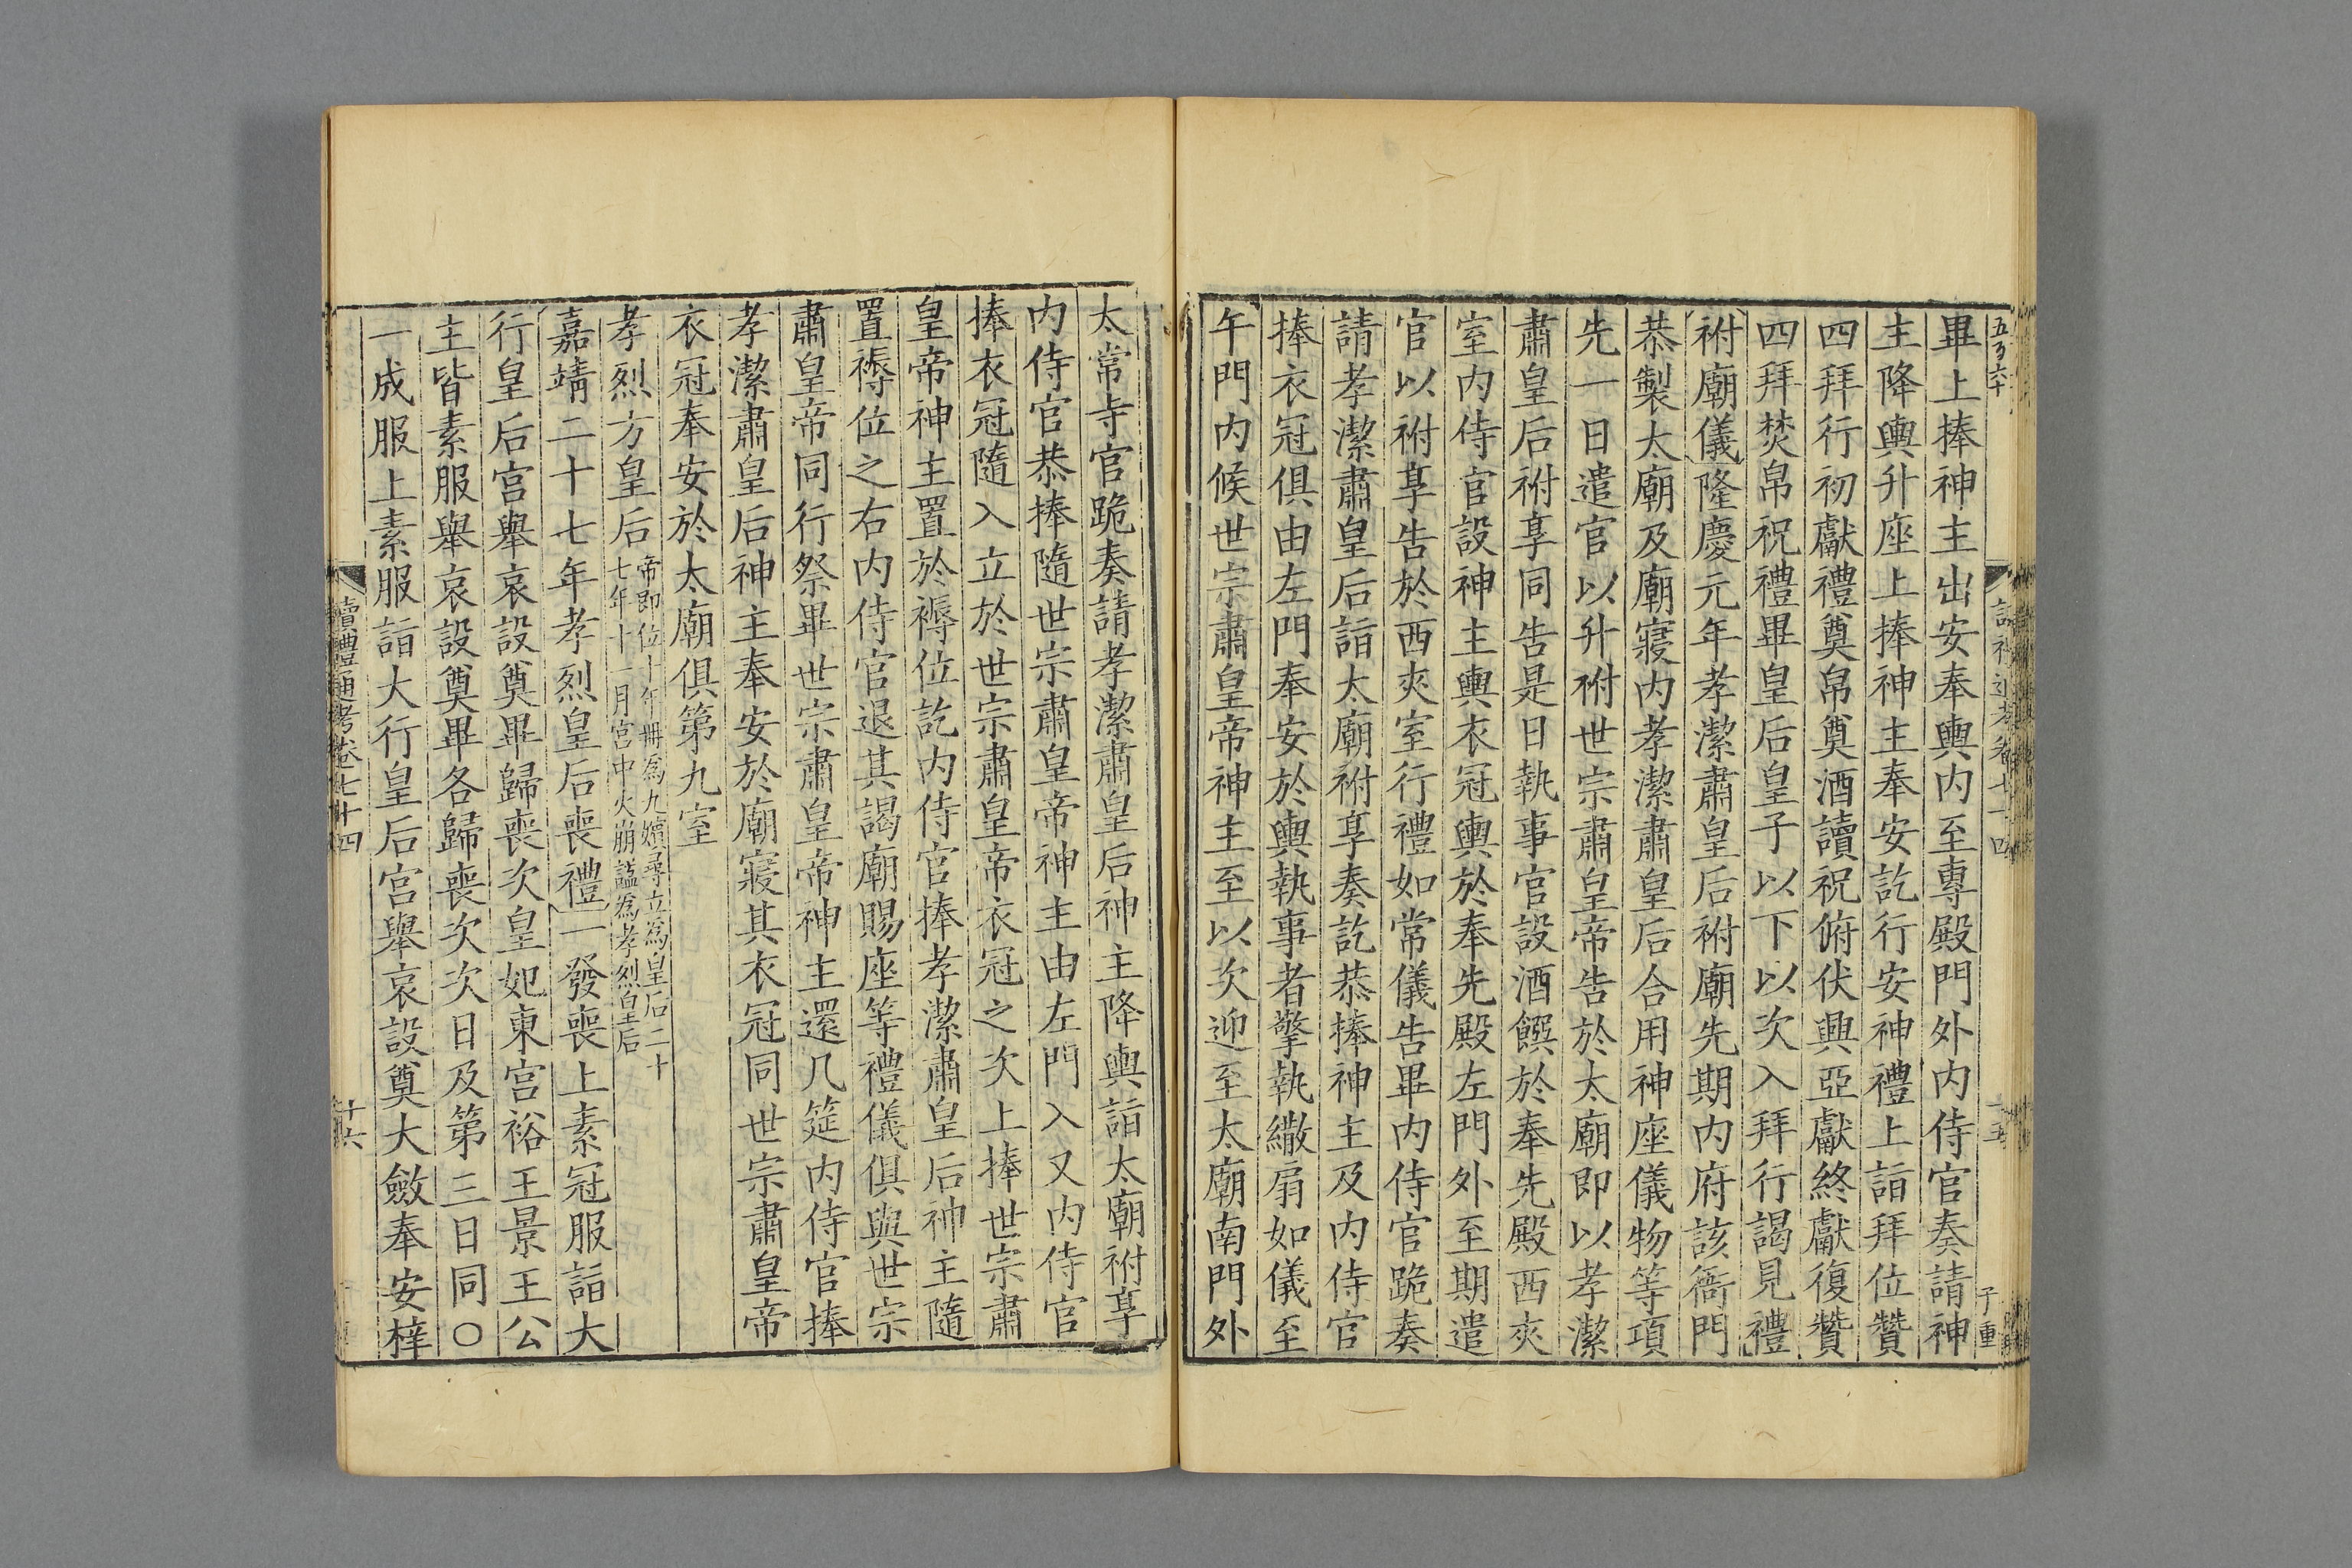 五百六十
畢上捧神主出安奉輿内至專殿門外内侍官奏請神
主降輿升座上捧神主奉安訖行安神禮上詣拜位贊
四拜行初獻禮奠帛奠酒讀祝俯伏興亞獻終獻復贊
四拜焚帛祝禮畢皇后皇子以下以次入拜行謁見禮
祔廟儀隆慶元年孝潔肅皇后祔廟先期内府該衙門
恭製太廟及廟寢内孝潔肅皇后合用神座儀物等項
先一日遣官以升祔世宗肅皇帝告於太廟即以孝潔
肅皇后祔享同告是日執事官設酒饌於奉先殿西夾
室内侍官設神主輿衣冠輿於奉先殿左門外至期遣
官以祔享告於西夾室行禮如常儀告畢内侍官跪奏
請孝潔肅皇后詣太廟祔享奏訖恭捧神主及内侍官
捧衣冠俱由左門奉安於輿執事者擎執繖扇如儀至
午門内候世宗肅皇帝神主至以次迎至太廟南門外
太常寺官跪奏請孝潔肅皇后神主降輿詣太廟祔享
内侍官恭捧隨世宗肅皇帝神主由左門入又内侍官
捧衣冠隨入立於世宗肅皇帝衣冠之次上捧世宗肅
皇帝神主置於褥位訖内侍官捧孝潔肅皇后神主隨
置褥位之右内侍官退其謁廟賜座等禮儀俱與世宗
肅皇帝同行祭畢世宗肅皇帝神主還几筵内侍官捧
孝潔肅皇后神主奉安於廟寢其衣冠同世宗肅皇帝
衣冠奉安於太廟俱第九室
孝烈方皇后帝即位十年冊為九嬪尋立為皇后二十
七年十一月宮中火崩諡為孝烈皇后
嘉靖二十七年孝烈皇后喪禮一發喪上素冠服詣大
行皇后宮舉哀設奠畢歸喪次皇妃東宮裕王景王公
主皆素服舉哀設奠畢各歸喪次次日及第三日同〇
一成服上素服詣大行皇后宮舉哀設奠大斂奉安梓
讀禮通考卷七十四
十六